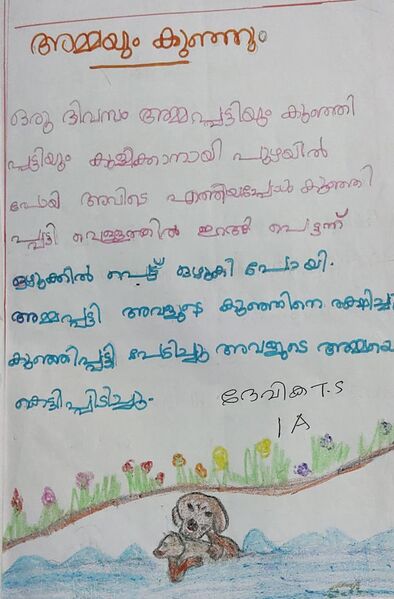 അമ്മയും കുഞ്ഞും
ഒരു ദിവസം അമ്മപ്പട്ടിയും കുഞ്ഞി
പ്പട്ടിയും കുളിക്കാനായി പുഴയിൽ
പോയി അവിടെ എത്തിയപ്പോൾ കുഞ്ഞി
പ്പട്ടി വെള്ളത്തിൽ ഇറങ്ങി പെട്ടന്ന്
ഒഴുക്കിൽ പെട്ട് ഒഴുകി പോയി.
അമ്മപ്പട്ടി അവളുടെ കുഞ്ഞിനെ രക്ഷിച്ചു
കുഞ്ഞിപ്പട്ടി പേടിച്ചു അവളുടെ അമ്മയെ
കെട്ടിപ്പിടിച്ചു.
ദേവിക T.S
1 A